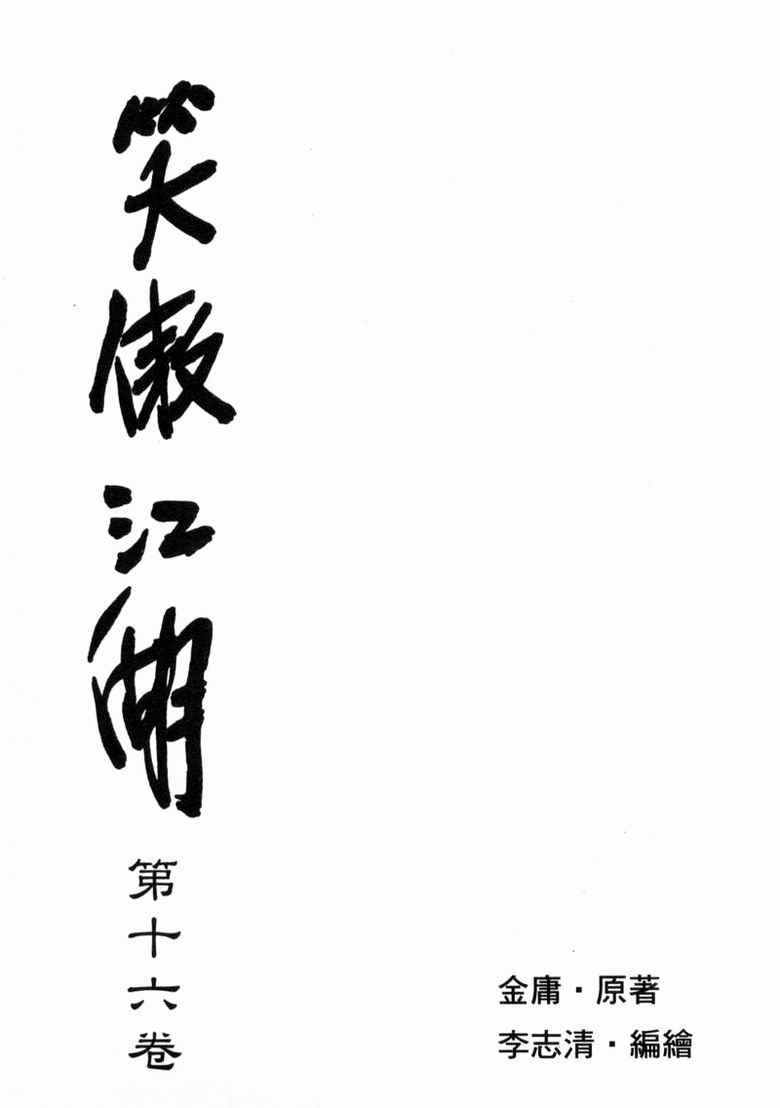 笑傲江湖
第十六卷
金庸·原著
李志清·編繪